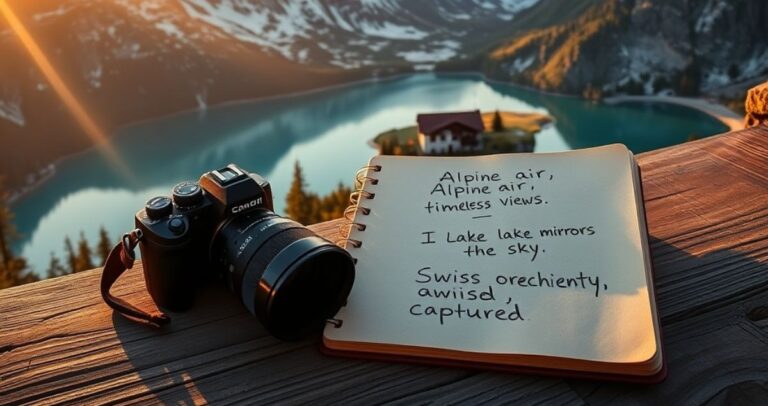 Canon
Alpine air,
Alpine air,
timeless views.
I Lake lake mirrors
the sky.
Swiss orechienty,
awiisd,
captured.